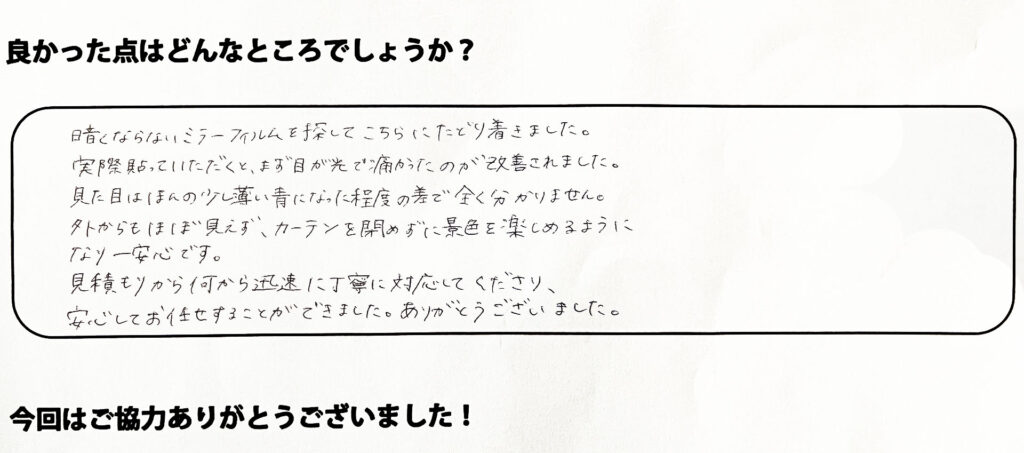 良かった点はどんなところでしょうか？
暗くならないミラーフィルムを探してこちらにたどり着きました。
実際貼っていただくと、まず目が光で痛かったのが改善されました。
見た目はほんの少し薄い青になった程度の差で全く分かりません。
外からもほぼ見えず、カーテンを閉めずに景色を楽しめるように
なり一安心です。
見積もりから何から迅速に丁寧に対応してくださり、
安心してお任せすることができました。ありがとうございました。
今回はご協力ありがとうございました！